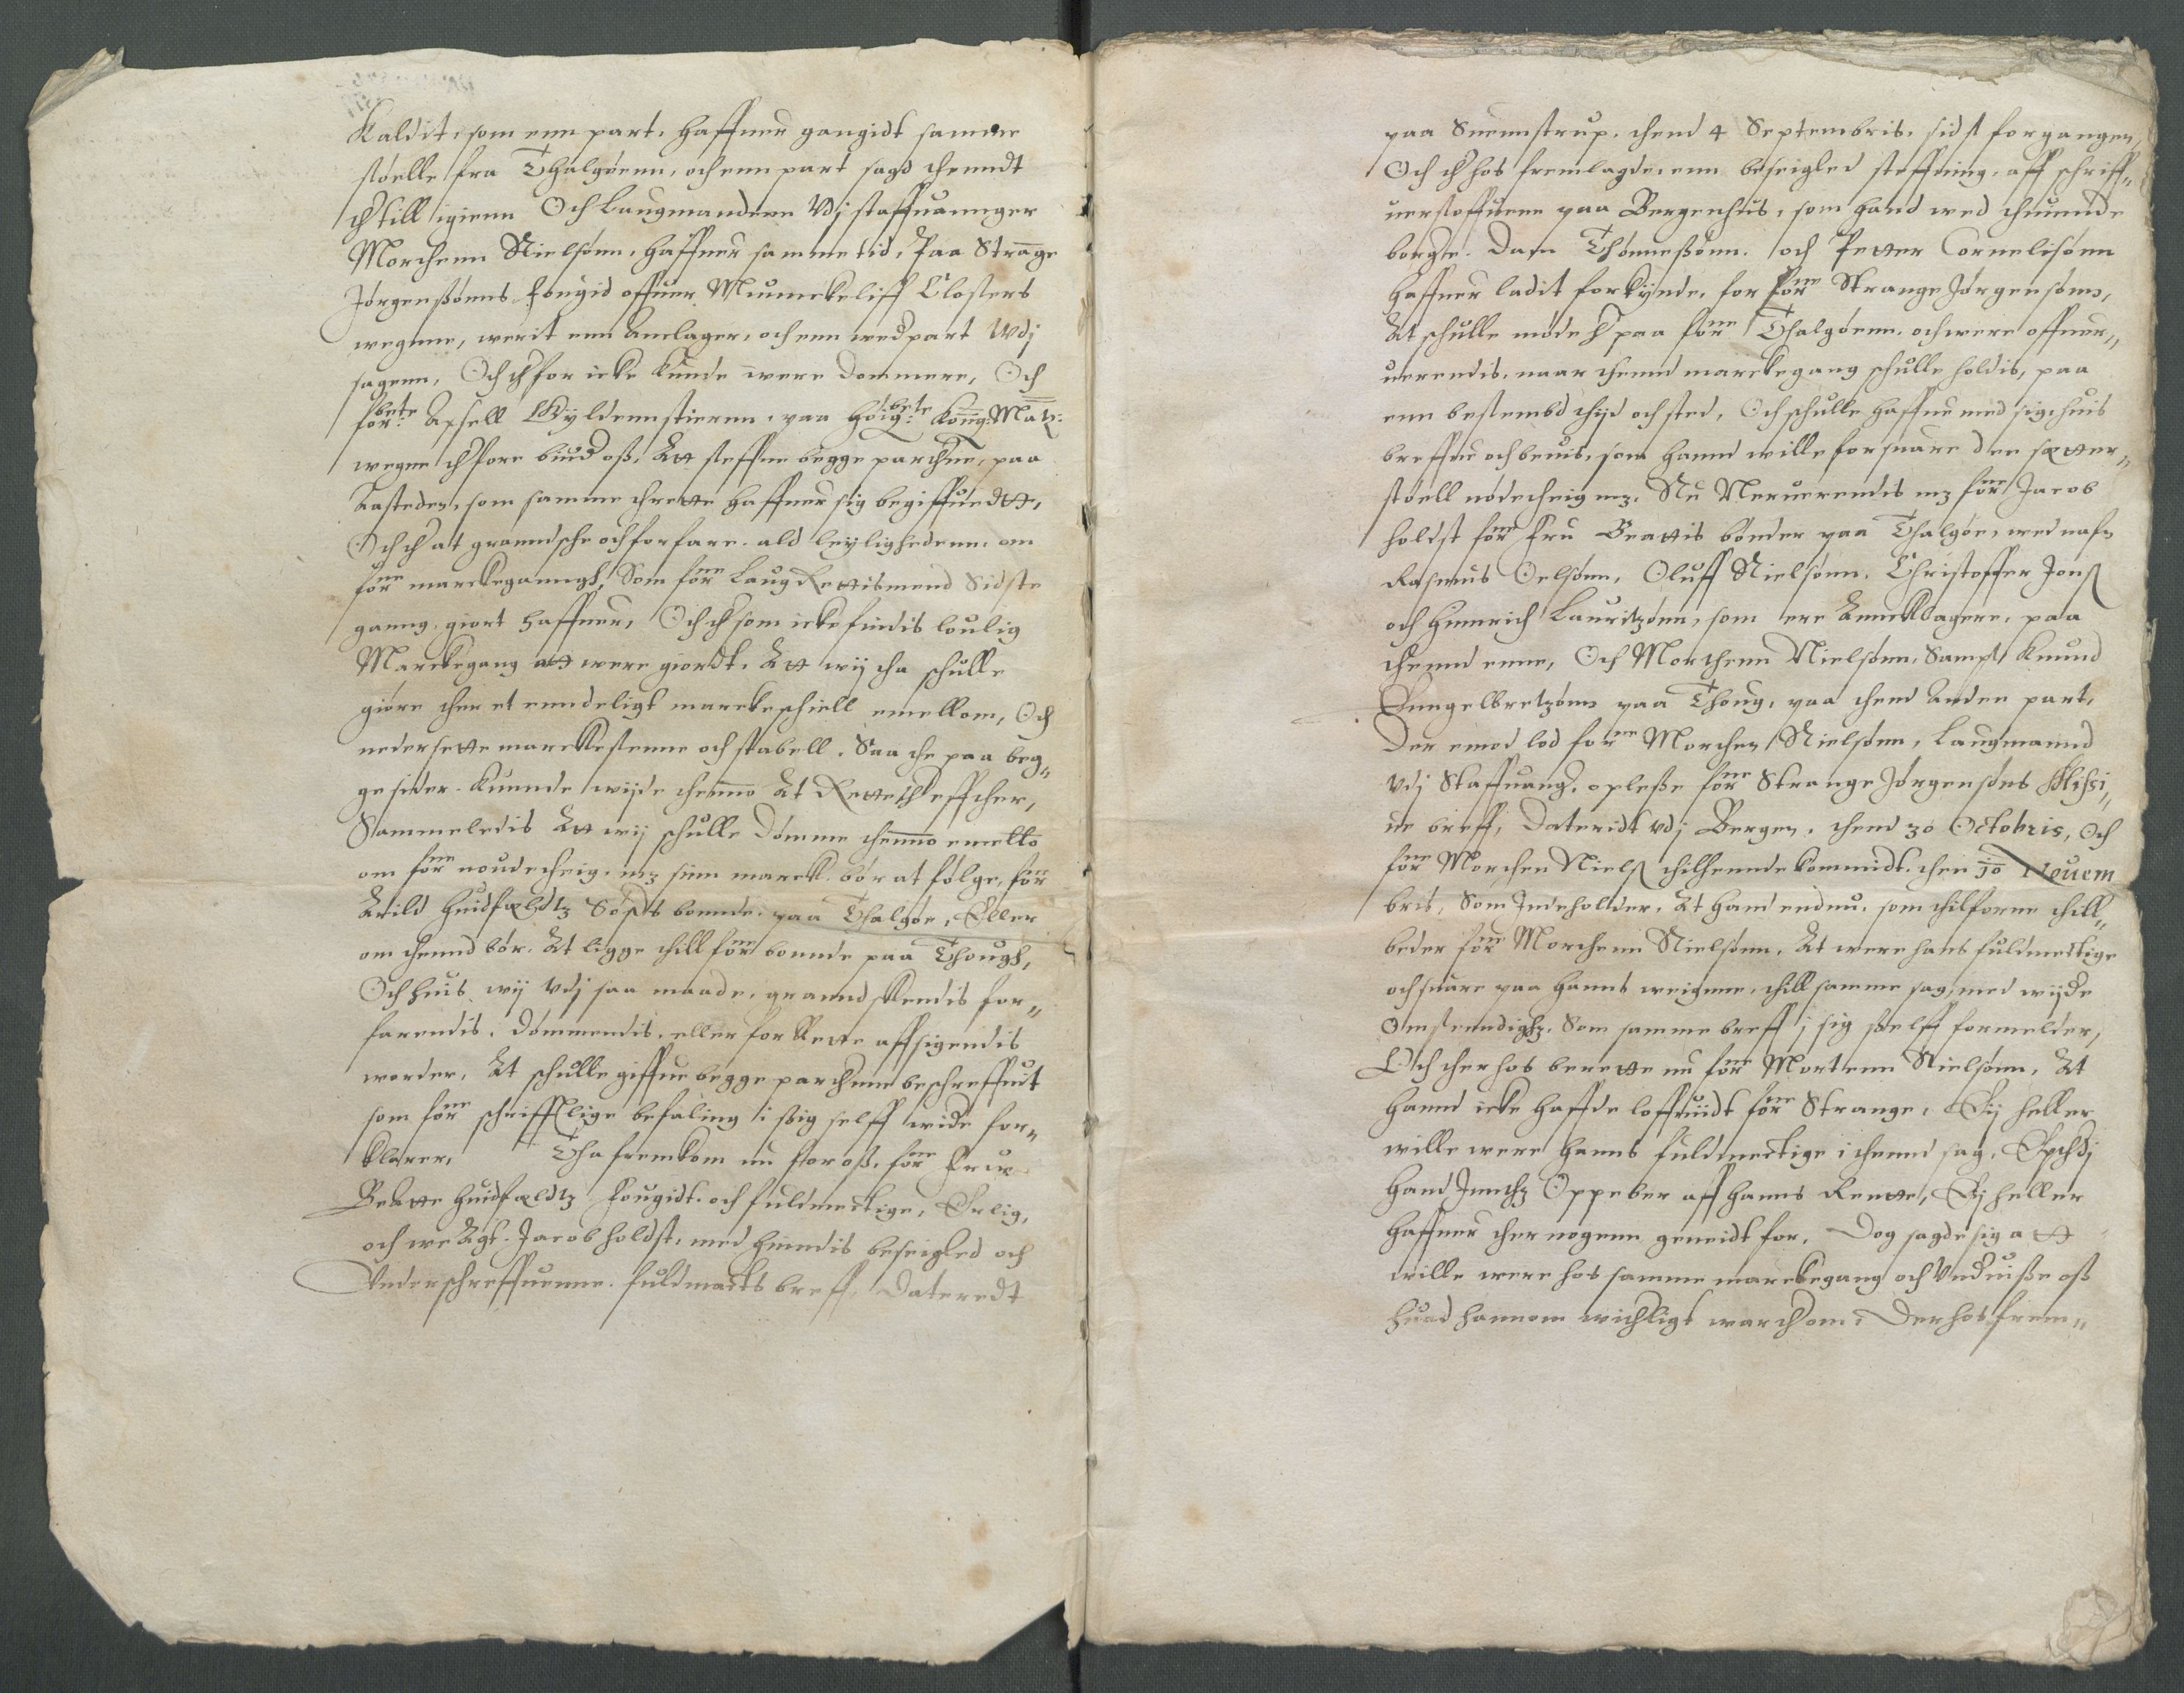 Kaldit, som enn part, haffuer gangidt samme
støelle fra Thalgøenn, och enn part sagd thenndt
th till igienn Och Laugmandenn Vdj staffuannger
Morthenn Nielsønn, haffuer samme tid, Paa Strange
Jørgenßønns fougid offuer Munnckeliff Closters
wegnne, werit enn Anclager, och enn wedpart Wdj
sagenn, Och th for icke kunde were dommere, Och
forbete: Axsell Gyldennstiernn, paa høigbete: Kōng: Matz:
wegne th fore biud oß, Att steffne begge parthne, paa
Aasteden, som samme thrette haffuer sig begiffuedtt,
Och th at granndsche och forfare, ald leyligheden, om
forne marckeganngh, Som forne Laug Rettismend Sidste
ganng, giort haffuer, Och th som icke findis loulig
Marckegang att were giordt, Att wij tha schulle
giøre ther et enndeligt marckeschiell emellom, Och
nedersette marckestenne och stabell, Saa the paa beg„
ge sider, kunnde wijde thennō At Rette th effther,
Sammeledis Att wij schulle Domme thennō emellō
om forne noudetheig, mz sinn marck, bør at følge, forne
Arild Huidfeldtz Søsts bonnde, paa Thalgøe, Eller
om thennd bør, At ligge thill forne bonnde paa Though,
Och huis wij Vdj saa maade, granndskendis for„
farendis, Dommendis, eller for Rette affsigendis
worder, At schulle giffue begge parthenne beschreffuit
som forne schrifftlige befaling i ßig selff wide for„
klarer, Tha fremkom nu for oß, forne Frue
Beatte Huidfeldtz fougidt och fuldmectige, Erlig,
och we Agt. Jacob Holdst, med hinndis beseigled och
Vnderschreffuenne fuldmackts breff, Dateredt
paa Suennstrup, thend 4 Septembris, sidst forgangen,
Och th hos fremlagde, enn beseigled steffning, aff schriff„
uerstoffuenn paa Bergenhus, som hand wed thuennde
borgre. Dafn Thønneßønn, och Petter Cornelisønn
haffuer ladit forkynde, for forne Strange Jørgensønn,
At schulle møde h paa forne Thalgøenn, och were offuer„
uerendis, naar thennd marckegang schulle holdis, paa
enn bestembd thijd och sted, Och schulle haffue med sig, huis
breffue och beuis, som hannd wille forsuare den sætter„
støell nødetheig mz, Nu Neruerendis mz forne Jacob
Holdst forne Fru Beattis bønder paa Thalgøe, ved nafn
Rasmus Oelsønn, Oluff Nielsønn, Christoffer Jonß
och Hennrich Lauritzønn, som ere Anncklagere, paa
thennd enne, Och Morthenn Nielsønn, Sampt Knuud
Enngelbretzønn paa Thoug, paa thend Anden part,
Der emod lod forne Morthen Nielsønn, Laugmannd
Vdj Staffuang, oplesse forne Strange Jørgensøns Missi„
ue breff, Dateridt vdj Bergen, thend 30 Octobris, Och
forne Morthen Nielß thilhennde kommidt then 10 Nouem
bris, Som Jndeholder, At hand endnu, som thilforne thill„
beder forne Morthenn Nielsønn, At were hans fuldmectige
och suare paa hanns weignne, thill samme sag, med wijde
Omstenndighz, Som samme breff j sig ßelff formelder,
Och ther hos berette nu forne Mortenn Nielsønn, At
hannd icke haffde loffuidt forne Strange, Eij heller
wille were hanns fuldmectige i thennd sag, Epthj
hand Jnnthz Oppeber aff hanns Rennte, Ej heller
haffuer ther nogenn geneidt for, Dog sagde sig att
wille were hos samme marckegang och Vnduiße oß
huad hannom witterligt war th om, Der hos frem„